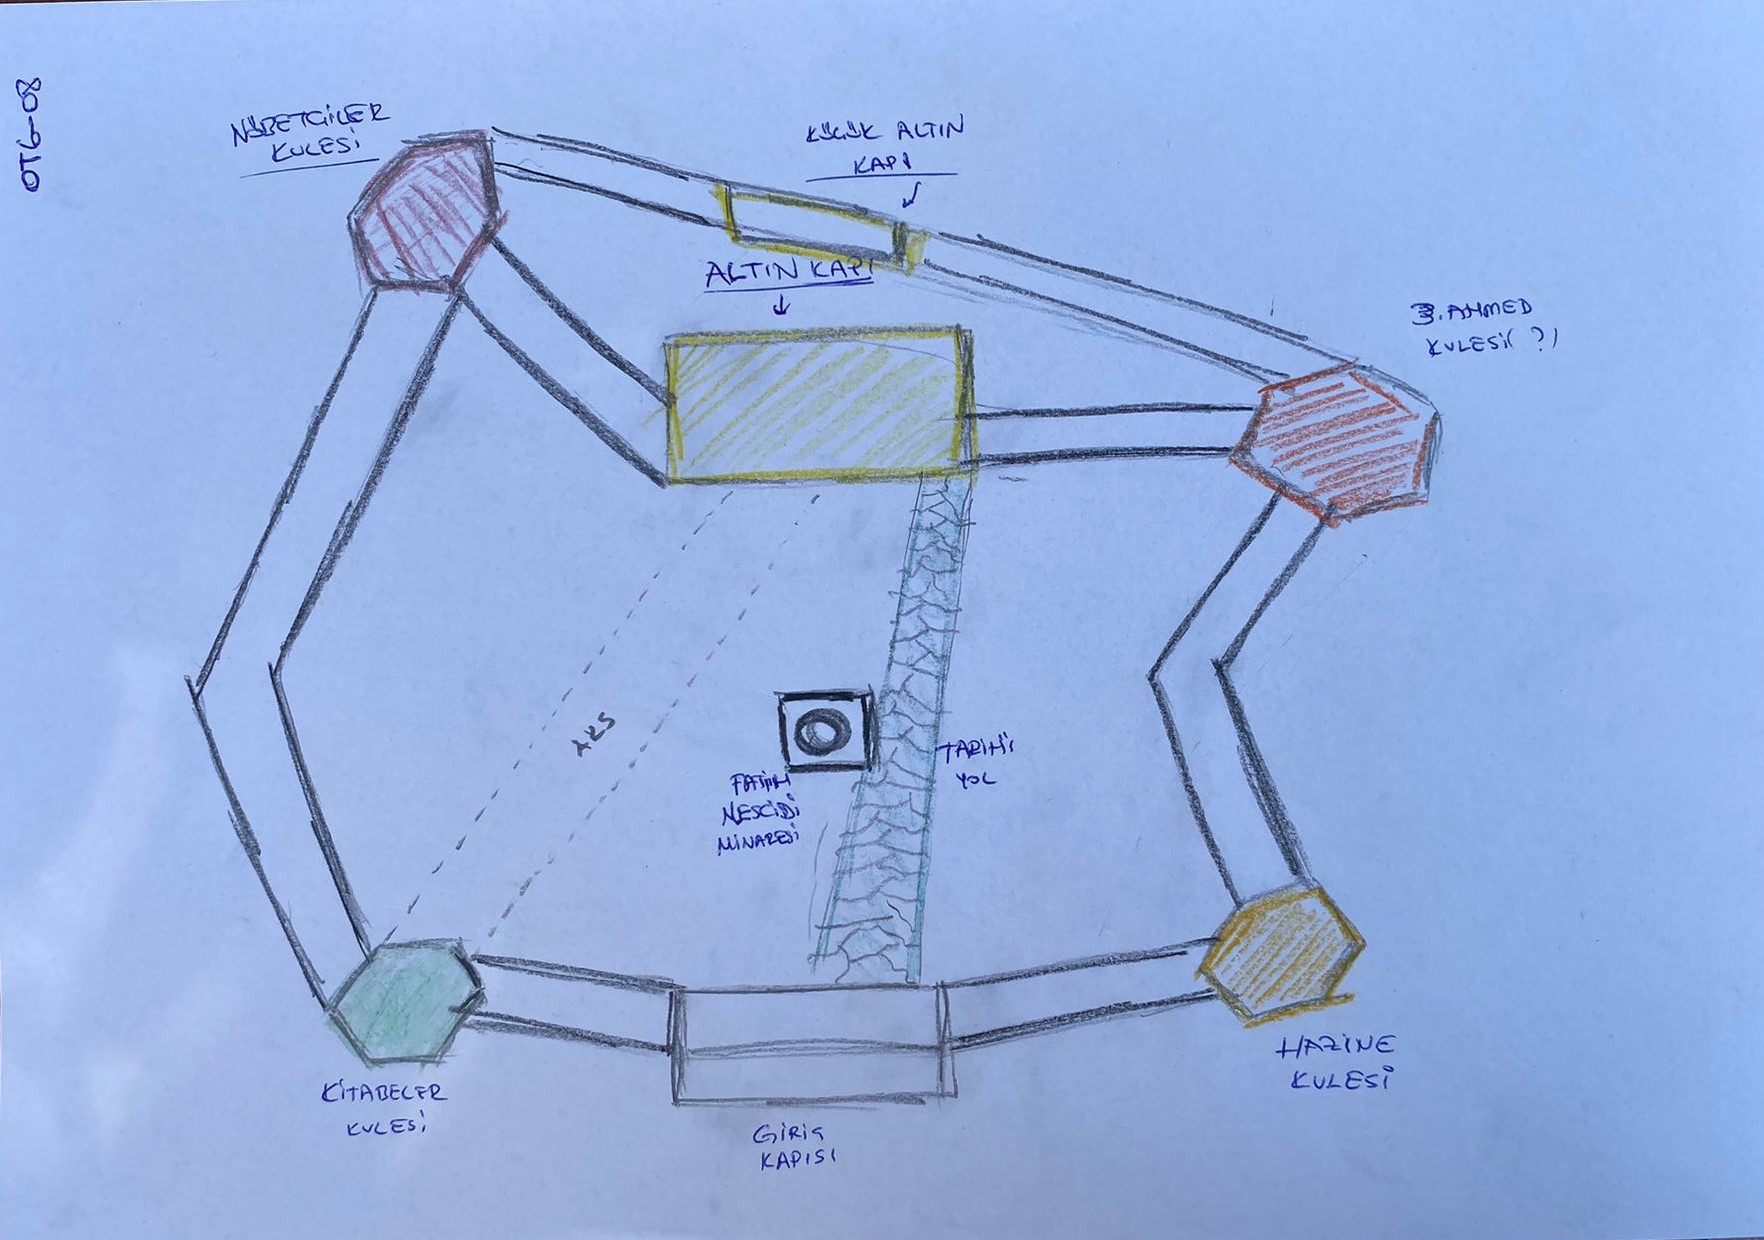 OT6-08
NÖBETÇİLER
KULESİ
KÜÇÜK ALTIN
KAPI
ALTIN KAPI
3. AHMED
KULESİ(?)
AKS
FATİH
MESCİDİ
MİNARESİ
TARİHİ
YOL
KİTABELER
KULESİ
GİRİŞ
KAPISI
HAZİNE
KULESİ